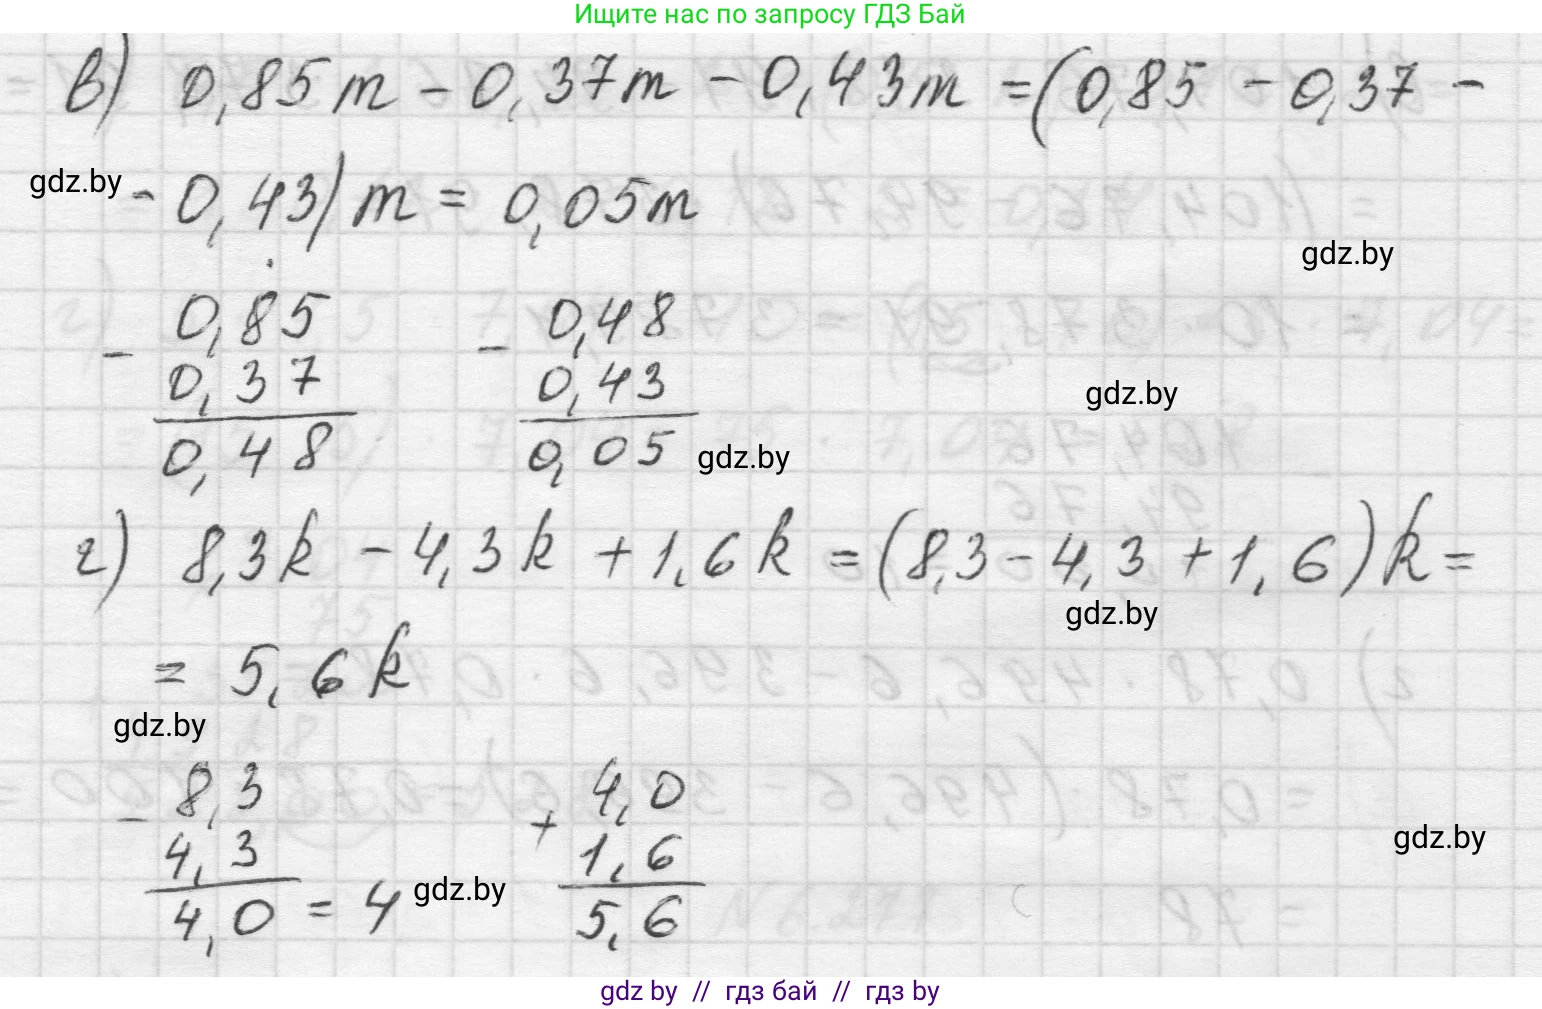 Ищите нас по запросу ГДЗ Бай
в) 0,85m - 0,37m - 0,43m = (0,85 - 0,37 -
gdz.by
- 0,43)m = 0,05m
gdz.by
- 0,85
0,37
0,48
- 0,48
0,43
0,05
gdz.by
gdz.by
г) 8,3k - 4,3k + 1,6k = (8,3 - 4,3 + 1,6)k =
gdz.by
= 5,6k
gdz.by
- 8,3
4,3
4,0 = 4
gdz.by
+ 4,0
1,6
5,6
gdz.by
gdz by // гдз бай // гдз by